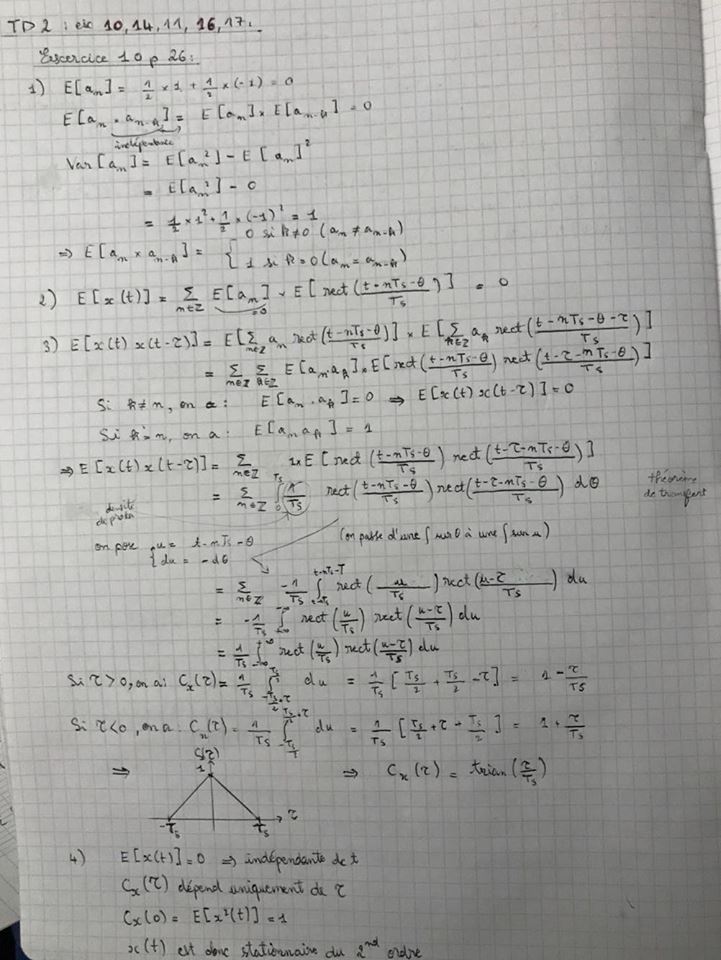 TD 2 : ex 10, 14, 11, 16, 17.
Exercice 10 p 26 :
1) E[a_n] = 1/2 × 1 + 1/2 × (-1) = 0
E[a_n × a_{n-k}] = E[a_n] × E[a_{n-k}] = 0
indépendance
Var[a_n] = E[a_n²] - E[a_n]²
= E[a_n²] - 0
= 1/2 × 1² + 1/2 × (-1)² = 1
⇒ E[a_n × a_{n-k}] = { 0 si k≠0 (a_n ≠ a_{n-k})
1 si k=0 (a_n = a_{n-k})
2) E[x(t)] = Σ_{n∈Z} E[a_n] × E[rect((t-nTs-θ)/Ts)] = 0
=0
3) E[x(t) x(t-τ)] = E[Σ_{n∈Z} a_n rect((t-nTs-θ)/Ts)] × E[Σ_{k∈Z} a_k rect((t-nTs-θ-τ)/Ts)]
= Σ_{n∈Z} Σ_{k∈Z} E[a_n a_k] × E[rect((t-nTs-θ)/Ts) rect((t-τ-nTs-θ)/Ts)]
Si k≠n, on a : E[a_n . a_k] = 0 ⇒ E[x(t) x(t-τ)] = 0
Si k=n, on a : E[a_n a_k] = 1
⇒ E[x(t) x(t-τ)] = Σ_{n∈Z} 1×E[rect((t-nTs-θ)/Ts) rect((t-τ-nTs-θ)/Ts)]
= Σ_{n∈Z} ∫_0^{Ts} 1/Ts rect((t-nTs-θ)/Ts) rect((t-τ-nTs-θ)/Ts) dθ théorème de transfert
densité de proba
on pose { u = t-nTs-θ (on passe d'une ∫ sur θ à une ∫ sur u)
du = -dθ
= Σ_{n∈Z} -1/Ts ∫ rect(u/Ts) rect((u-τ)/Ts) du
= -1/Ts ∫_{+∞}^{-∞} rect(u/Ts) rect((u-τ)/Ts) du
= 1/Ts ∫_{-∞}^{+∞} rect(u/Ts) rect((u-τ)/Ts) du
Si τ>0, on a : Cx(τ) = 1/Ts ∫_{-Ts/2+τ}^{Ts/2} du = 1/Ts [Ts/2 + Ts/2 - τ] = 1 - τ/Ts
Si τ<0, on a : Cx(τ) = 1/Ts ∫_{-Ts/2}^{Ts/2+τ} du = 1/Ts [Ts/2 + τ + Ts/2] = 1 + τ/Ts
C(τ)
1
⇒ ⇒ Cx(τ) = trian(τ/Ts)
-Ts Ts τ
4) E[x(t)] = 0 ⇒ indépendante de t
Cx(τ) dépend uniquement de τ
Cx(0) = E[x²(t)] = 1
x(t) est donc stationnaire du 2nd ordre